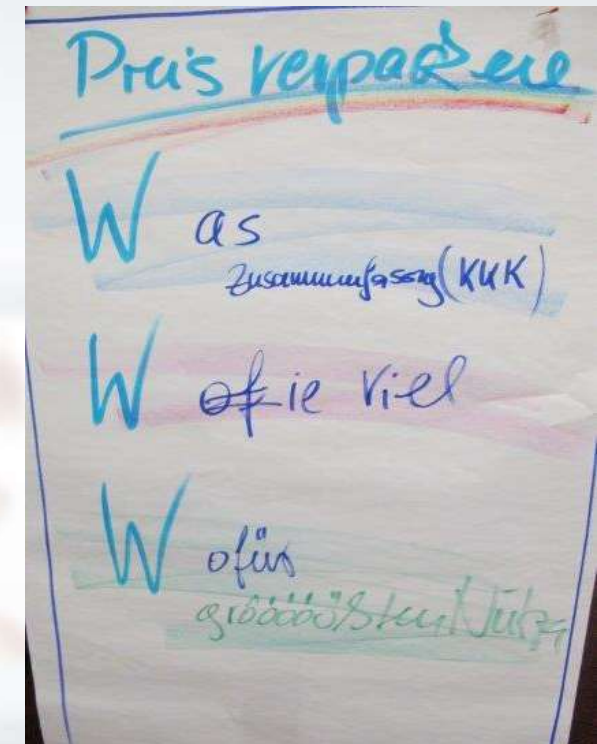 Preis verpacken
Was
Zusammenfassung (KKK)
W of ie viel
Wofür
gröööößten Nutzen